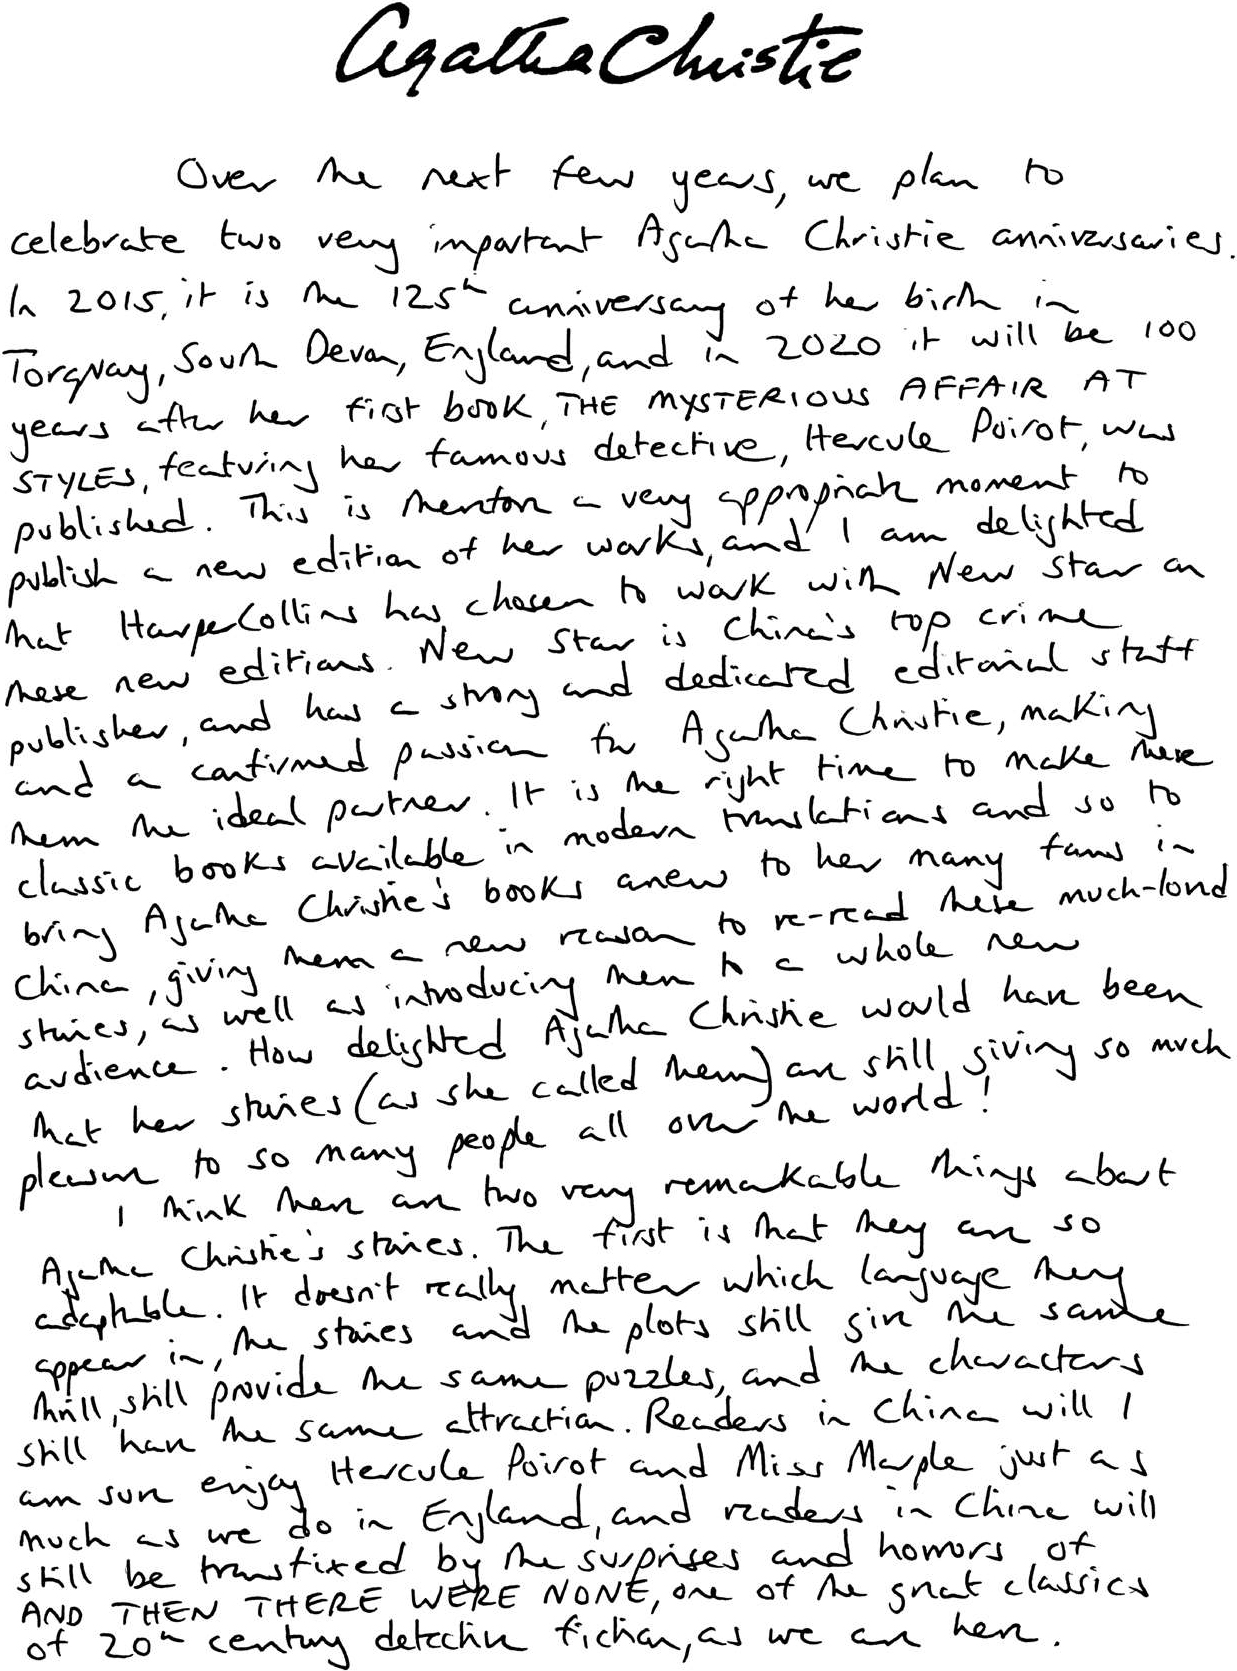 Agatha Christie
Over the next few years, we plan to
celebrate two very important Agatha Christie anniversaries.
In 2015, it is the 125th anniversary of her birth in
Torquay, South Devon, England, and in 2020 it will be 100
years after her first book, THE MYSTERIOUS AFFAIR AT
STYLES, featuring her famous detective, Hercule Poirot, was
published. This is therefore a very appropriate moment to
publish a new edition of her works, and I am delighted
that HarperCollins has chosen to work with New Star on
these new editions. New Star is China's top crime
publisher, and has a strong and dedicated editorial staff
and a confirmed passion for Agatha Christie, making
them the ideal partner. It is the right time to make these
classic books available in modern translations and so to
bring Agatha Christie's books anew to her many fans in
China, giving them a new reason to re-read these much-loved
stories, as well as introducing them to a whole new
audience. How delighted Agatha Christie would have been
that her stories (as she called them) are still giving so much
pleasure to so many people all over the world!
I think there are two very remarkable things about
Agatha Christie's stories. The first is that they are so
adaptable. It doesn't really matter which language they
appear in, the stories and the plots still give the same
thrill, still provide the same puzzles, and the characters
still have the same attraction. Readers in China will I
am sure enjoy Hercule Poirot and Miss Marple just as
much as we do in England, and readers in China will
still be transfixed by the surprises and horrors of
AND THEN THERE WERE NONE, one of the great classics
of 20th century detective fiction, as we are here.